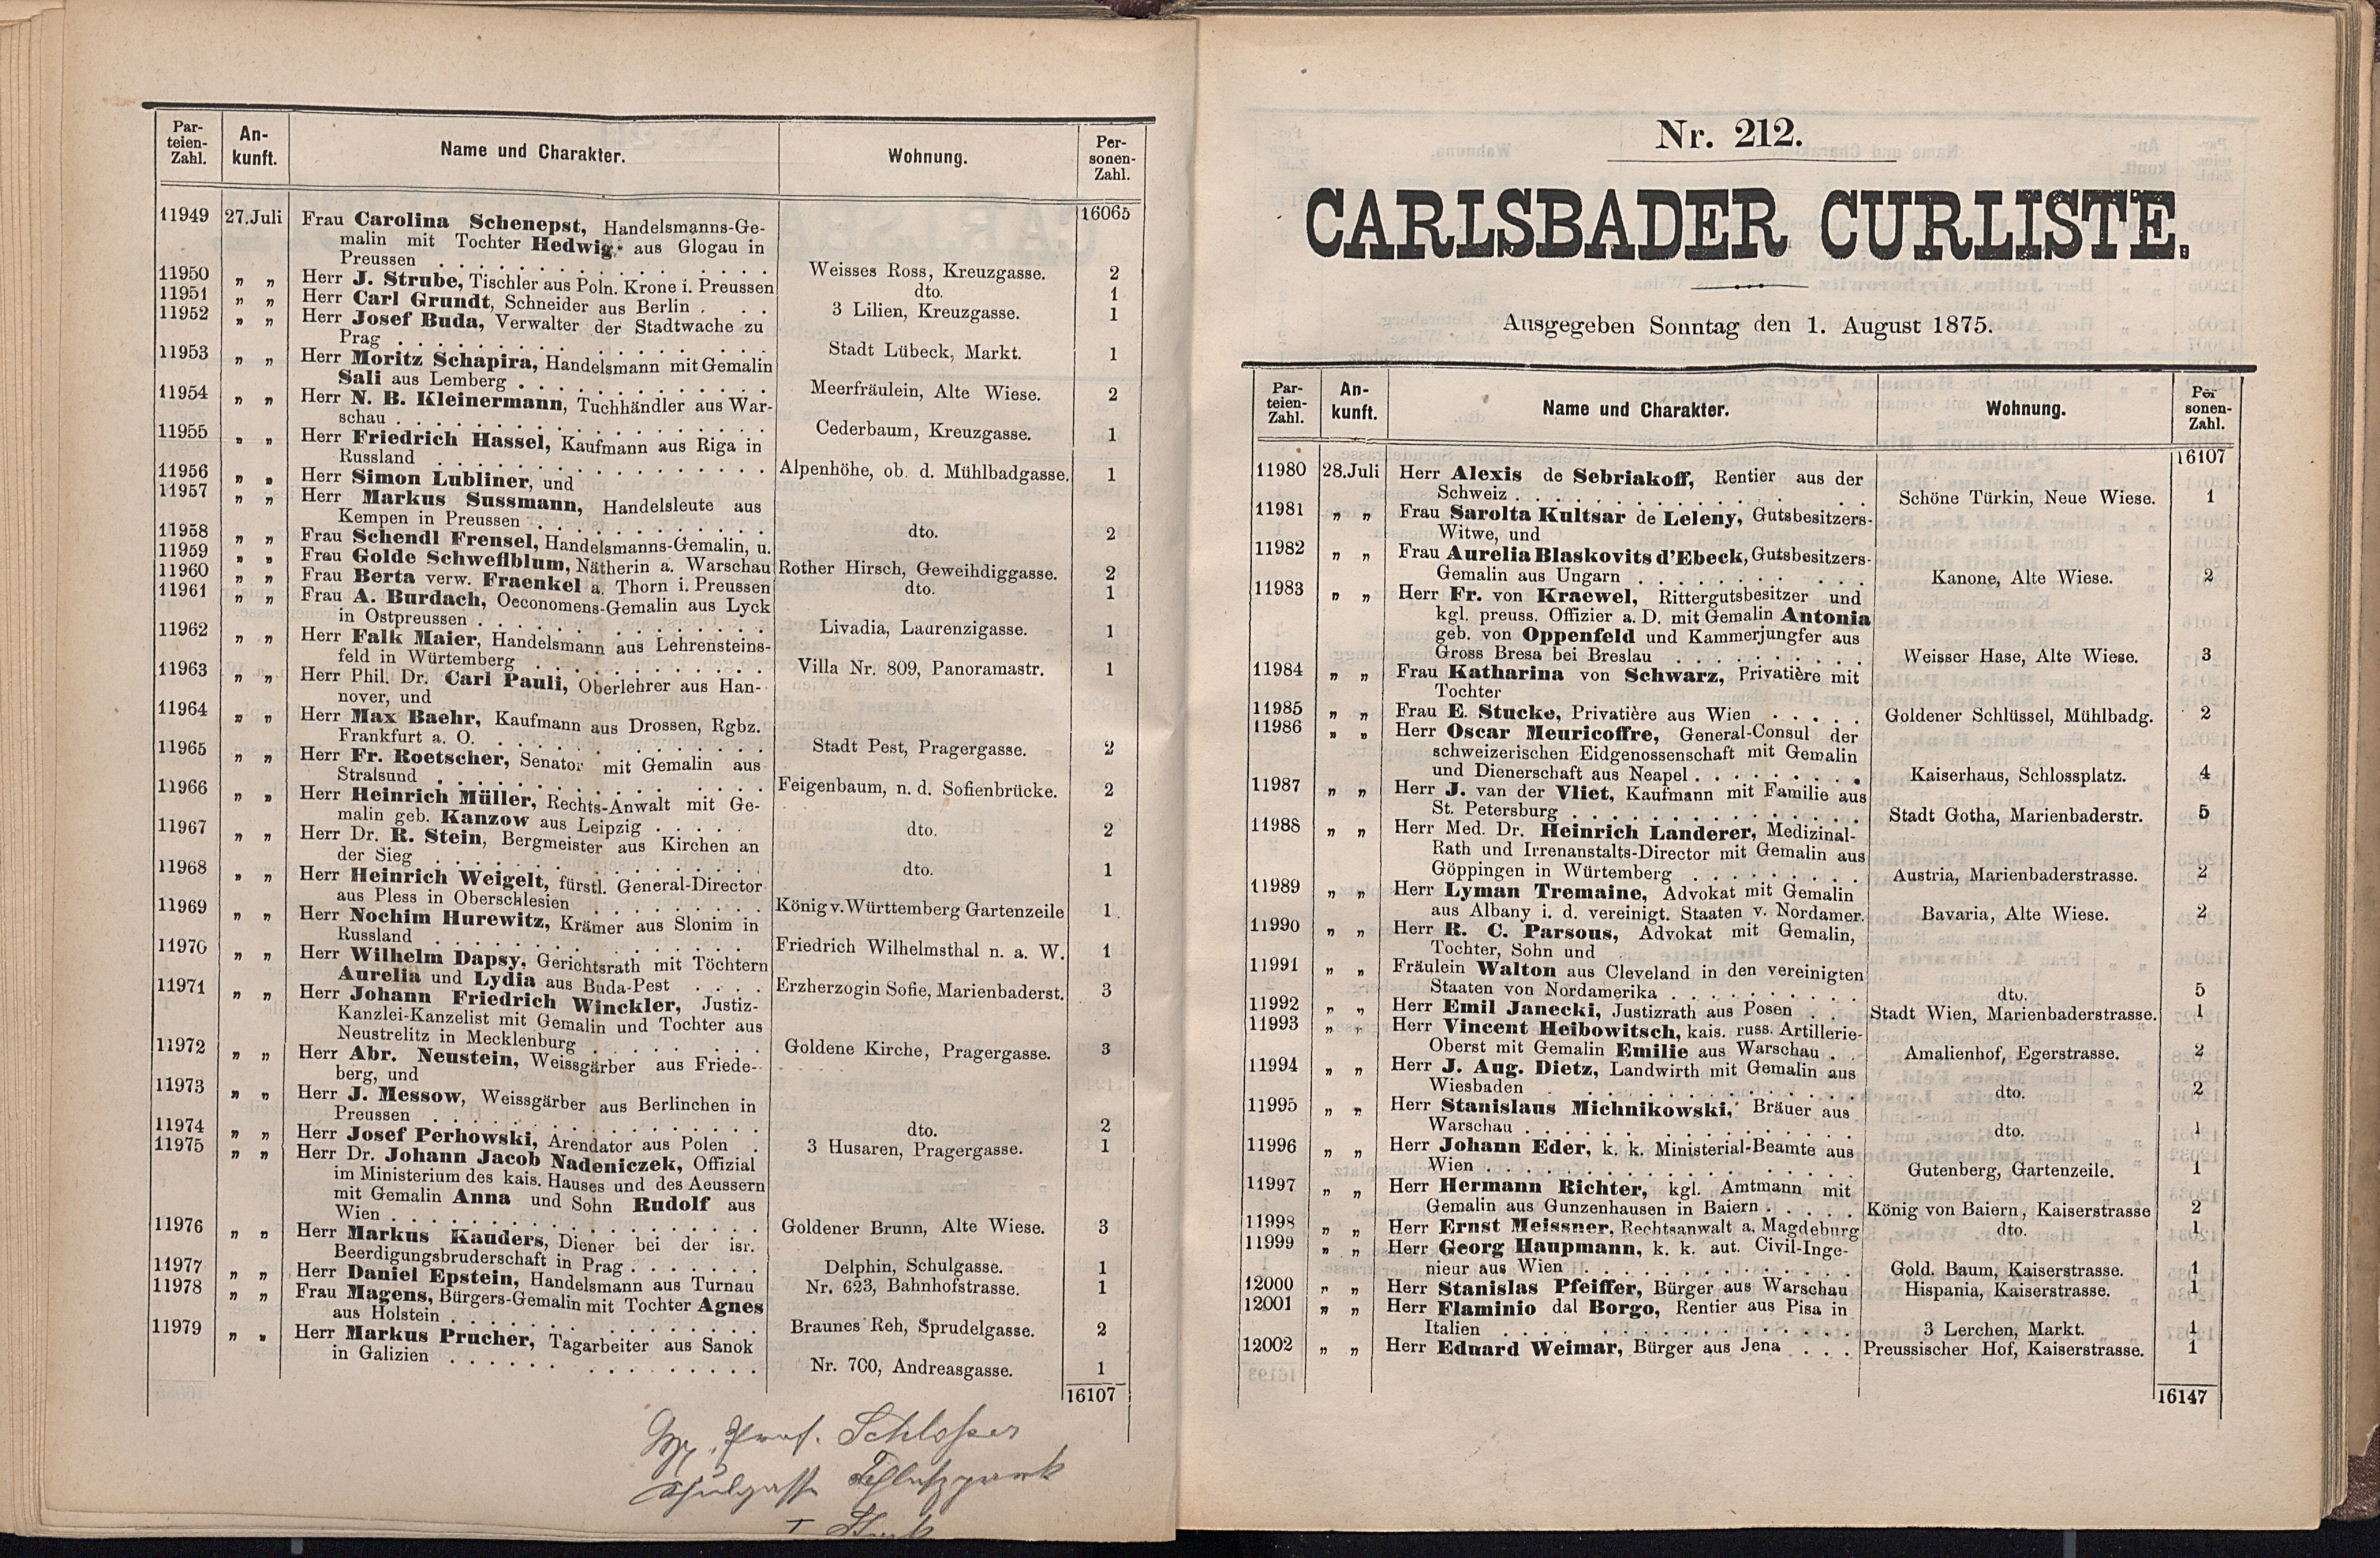 Par-
teien-
Zahl.
An-
kunft.
Name und Charakter.
Wohnung.
Per-
sonen-
Zahl.
16065
11949 27.Juli Frau Carolina Schenepst, Handelsmanns-Ge-
malin mit Tochter Hedwig aus Glogau in
Preussen . . . . Weisses Ross, Kreuzgasse. 2
11950 „ „ Herr J. Strube, Tischler aus Poln. Krone i. Preussen dto. 1
11951 „ „ Herr Carl Grundt, Schneider aus Berlin . . . 3 Lilien, Kreuzgasse. 1
11952 „ „ Herr Josef Buda, Verwalter der Stadtwache zu
Prag . . . . Stadt Lübeck, Markt. 1
11953 „ „ Herr Moritz Schapira, Handelsmann mit Gemalin
Sali aus Lemberg . . . . Meerfräulein, Alte Wiese. 2
11954 „ „ Herr N. B. Kleinermann, Tuchhändler aus War-
schau . . . . Cederbaum, Kreuzgasse. 1
11955 „ „ Herr Friedrich Hassel, Kaufmann aus Riga in
Russland . . . . Alpenhöhe, ob. d. Mühlbadgasse. 1
11956 „ „ Herr Simon Lubliner, und
11957 „ „ Herr Markus Sussmann, Handelsleute aus
Kempen in Preussen . . . . dto. 2
11958 „ „ Frau Schendl Frensel, Handelsmanns-Gemalin, u.
11959 „ „ Frau Golde Schweflblum, Nätherin a. Warschau Rother Hirsch, Geweihdiggasse. 2
11960 „ „ Frau Berta verw. Fraenkel a. Thorn i. Preussen dto. 1
11961 „ „ Frau A. Burdach, Oeconomens-Gemalin aus Lyck
in Ostpreussen . . . . Livadia, Laurenzigasse. 1
11962 „ „ Herr Falk Maier, Handelsmann aus Lehrensteins-
feld in Würtemberg . . . . Villa Nr. 809, Panoramastr. 1
11963 „ „ Herr Phil. Dr. Carl Pauli, Oberlehrer aus Han-
nover, und
11964 „ „ Herr Max Baehr, Kaufmann aus Drossen, Rgbz.
Frankfurt a. O. . . . . Stadt Pest, Pragergasse. 2
11965 „ „ Herr Fr. Roetscher, Senator mit Gemalin aus
Stralsund . . . . Feigenbaum, n. d. Sofienbrücke. 2
11966 „ „ Herr Heinrich Müller, Rechts-Anwalt mit Ge-
malin geb. Kanzow aus Leipzig . . . . dto. 2
11967 „ „ Herr Dr. R. Stein, Bergmeister aus Kirchen an
der Sieg . . . . dto. 1
11968 „ „ Herr Heinrich Weigelt, fürstl. General-Director
aus Pless in Oberschlesien . . . . König v. Württemberg Gartenzeile 1
11969 „ „ Herr Nochim Hurewitz, Krämer aus Slonim in
Russland . . . . Friedrich Wilhelmsthal n. a. W. 1
11970 „ „ Herr Wilhelm Dapsy, Gerichtsrath mit Töchtern
Aurelia und Lydia aus Buda-Pest . . . . Erzherzogin Sofie, Marienbaderst. 3
11971 „ „ Herr Johann Friedrich Winckler, Justiz-
Kanzlei-Kanzelist mit Gemalin und Tochter aus
Neustrelitz in Mecklenburg . . . . Goldene Kirche, Pragergasse. 3
11972 „ „ Herr Abr. Neustein, Weissgärber aus Friede-
berg, und
11973 „ „ Herr J. Messow, Weissgärber aus Berlinchen in
Preussen . . . . dto. 2
11974 „ „ Herr Josef Perhowski, Arendator aus Polen . 3 Husaren, Pragergasse. 1
11975 „ „ Herr Dr. Johann Jacob Nadeniczek, Offizial
im Ministerium des kais. Hauses und des Aeussern
mit Gemalin Anna und Sohn Rudolf aus
Wien . . . . Goldener Brunn, Alte Wiese. 3
11976 „ „ Herr Markus Kauders, Diener bei der isr.
Beerdigungsbruderschaft in Prag . . . . Delphin, Schulgasse. 1
11977 „ „ Herr Daniel Epstein, Handelsmann aus Turnau Nr. 623, Bahnhofstrasse. 1
11978 „ „ Frau Magens, Bürgers-Gemalin mit Tochter Agnes
aus Holstein . . . . Braunes Reh, Sprudelgasse. 2
11979 „ „ Herr Markus Prucher, Tagarbeiter aus Sanok
in Galizien . . . . Nr. 700, Andreasgasse. 1
16107
Prof. Schlosser
Nr. 212.
CARLSBADER CURLISTE.
Ausgegeben Sonntag den 1. August 1875.
Par-
teien-
Zahl.
An-
kunft.
Name und Charakter.
Wohnung.
Per
sonen-
Zahl.
16107
11980 28.Juli Herr Alexis de Sebriakoff, Rentier aus der
Schweiz . . . . Schöne Türkin, Neue Wiese. 1
11981 „ „ Frau Sarolta Kultsar de Leleny, Gutsbesitzers-
Witwe, und
11982 „ „ Frau Aurelia Blaskovits d'Ebeck, Gutsbesitzers-
Gemalin aus Ungarn . . . . Kanone, Alte Wiese. 2
11983 „ „ Herr Fr. von Kraewel, Rittergutsbesitzer und
kgl. preuss. Offizier a. D. mit Gemalin Antonia
geb. von Oppenfeld und Kammerjungfer aus
Gross Bresa bei Breslau . . . . Weisser Hase, Alte Wiese. 3
11984 „ „ Frau Katharina von Schwarz, Privatière mit
Tochter
11985 „ „ Frau E. Stucke, Privatière aus Wien . . . . . Goldener Schlüssel, Mühlbadg. 2
11986 „ „ Herr Oscar Meuricoffre, General-Consul der
schweizerischen Eidgenossenschaft mit Gemalin
und Dienerschaft aus Neapel . . . . Kaiserhaus, Schlossplatz. 4
11987 „ „ Herr J. van der Vliet, Kaufmann mit Familie aus
St. Petersburg . . . . Stadt Gotha, Marienbaderstr. 5
11988 „ „ Herr Med. Dr. Heinrich Landerer, Medizinal-
Rath und Irrenanstalts-Director mit Gemalin aus
Göppingen in Würtemberg . . . . Austria, Marienbaderstrasse. 2
11989 „ „ Herr Lyman Tremaine, Advokat mit Gemalin
aus Albany i. d. vereinigt. Staaten v. Nordamer. Bavaria, Alte Wiese. 2
11990 „ „ Herr R. C. Parsons, Advokat mit Gemalin,
Tochter, Sohn und
11991 „ „ Fräulein Walton aus Cleveland in den vereinigten
Staaten von Nordamerika . . . . dto. 5
11992 „ „ Herr Emil Janecki, Justizrath aus Posen . . Stadt Wien, Marienbaderstrasse. 1
11993 „ „ Herr Vincent Heibowitsch, kais. russ. Artillerie-
Oberst mit Gemalin Emilie aus Warschau . Amalienhof, Egerstrasse. 2
11994 „ „ Herr J. Aug. Dietz, Landwirth mit Gemalin aus
Wiesbaden . . . . dto. 2
11995 „ „ Herr Stanislaus Michnikowski, Bräuer aus
Warschau . . . . dto. 1
11996 „ „ Herr Johann Eder, k. k. Ministerial-Beamte aus
Wien . . . . Gutenberg, Gartenzeile. 1
11997 „ „ Herr Hermann Richter, kgl. Amtmann mit
Gemalin aus Gunzenhausen in Baiern . . . . . König von Baiern, Kaiserstrasse 2
11998 „ „ Herr Ernst Meissner, Rechtsanwalt a. Magdeburg dto. 1
11999 „ „ Herr Georg Haupmann, k. k. aut. Civil-Inge-
nieur aus Wien . . . . Gold. Baum, Kaiserstrasse. 1
12000 „ „ Herr Stanislas Pfeiffer, Bürger aus Warschau Hispania, Kaiserstrasse. 1
12001 „ „ Herr Flaminio dal Borgo, Rentier aus Pisa in
Italien . . . . 3 Lerchen, Markt. 1
12002 „ „ Herr Eduard Weimar, Bürger aus Jena . . . Preussischer Hof, Kaiserstrasse. 1
16147